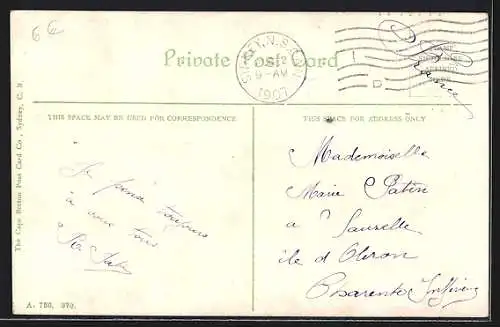 66
Private Post Card
SYDNEY, N.S. CAN
12
9-AM
1907
D
France
THIS SPACE MAY BE USED FOR CORRESPONDENCE
THIS SPACE FOR ADDRESS ONLY
Je pense toujours
à vous tous
Mademoiselle
Marie Patin
a Sauzelle
île d Oléron
Charente Infre
The Cape Breton Post Card Co., Sydney, C. B.
A. 780, 370.